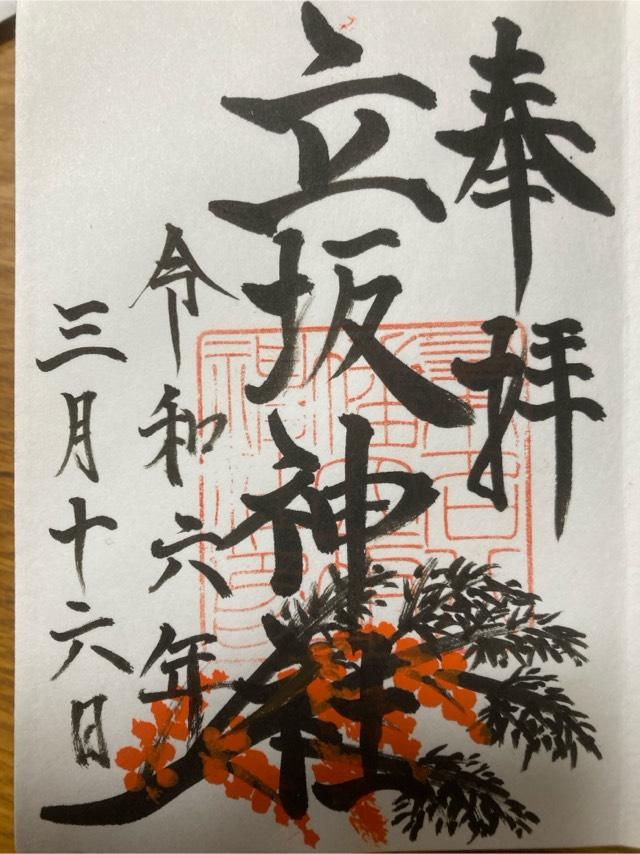 奉拝
立坂神社
令和六年
三月十六日